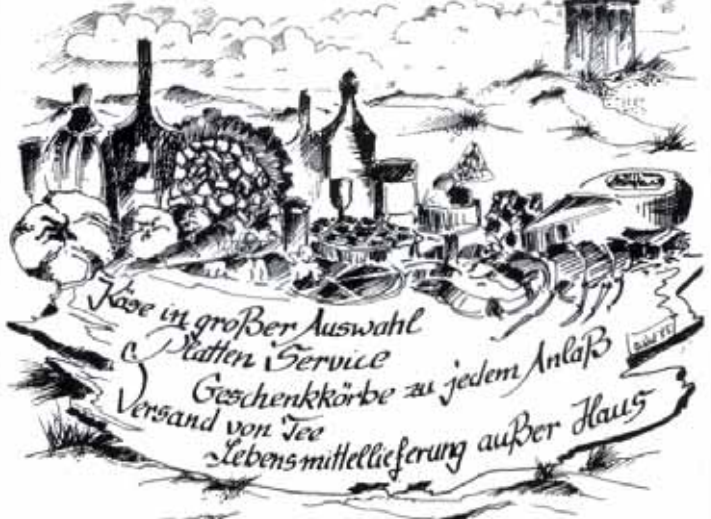 Käse in großer Auswahl
Platten Service
Geschenkkörbe zu jedem Anlaß
Versand von Tee
Lebensmittellieferung außer Haus